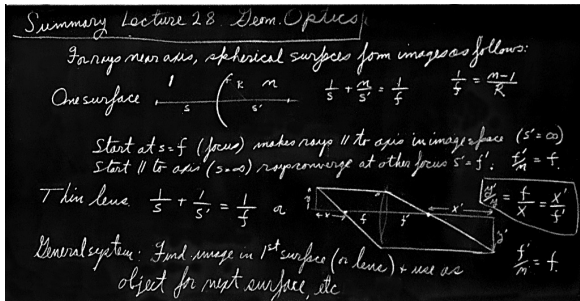 Summary Lecture 28. Geom. Optics
For rays near axis, spherical surfaces form images as follows:
One surface 1 R n s s' 1/s + n/s' = 1/f 1/f = n-1/R
Start at s=f (focus) makes rays // to axis in image space (s'=∞)
Start // to axis (s=∞) rays converge at other focus s'=f'. f'/n = f.
Thin lens 1/s + 1/s' = 1/f or y x f f' x' y' y'/y = f/x = x'/f'
General system: Find image in 1st surface (or lens) + use as f'/n' = f.
object for next surface, etc